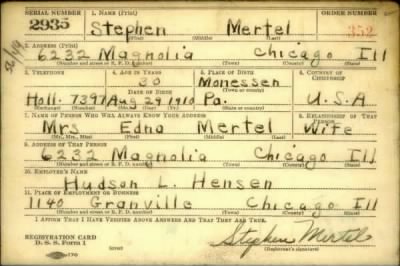 SERIAL NUMBER 1. NAME (Print) ORDER NUMBER
2935 Stephen Mertel 352
(First) (Middle) (Last)
2. ADDRESS (Print)
6232 Magnolia Chicago Ill
(Number and street or R. F. D. number) (Town) (County) (State)
3. TELEPHONE 4. AGE IN YEARS 5. PLACE OF BIRTH 6. COUNTRY OF CITIZENSHIP
30 Monessen
DATE OF BIRTH (Town or county)
Holl. 7397 Aug 29 1910 Pa. U.S.A
(Exchange) (Number) (Mo.) (Day) (Yr.) (State or country)
7. NAME OF PERSON WHO WILL ALWAYS KNOW YOUR ADDRESS 8. RELATIONSHIP OF THAT PERSON
Mrs Edna Mertel Wife
(Mr., Mrs., Miss) (First) (Middle) (Last)
9. ADDRESS OF THAT PERSON
6232 Magnolia Chicago Ill
(Number and street or R. F. D. number) (Town) (County) (State)
10. EMPLOYER'S NAME
Hudson L. Hensen
11. PLACE OF EMPLOYMENT OR BUSINESS
1140 Granville Chicago Ill
(Number and street or R. F. D. number) (Town) (County) (State)
I AFFIRM THAT I HAVE VERIFIED ABOVE ANSWERS AND THAT THEY ARE TRUE.
REGISTRATION CARD
D. S. S. FORM 1 Stephen Mertel
(Registrant's signature)